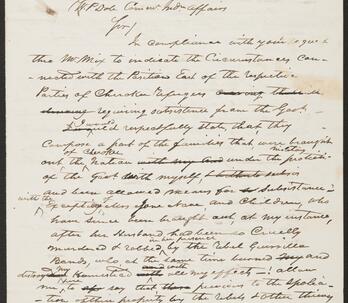 Wm P Dole Comr Indn Affairs
Sir,
In compliance with your request
thro Mr Mix to indicate the Circumstances con-
nected with the Portions East of the respective
Parties of Cherokee Refugees
requiring subsistence from the Govt.
I would respectfully state, that they
Compose a part of the families that were brought
out of the Cherokee Nation under the military protecti
of the Govt with myself
and been allowed means for Subsistance
with the exception of Jane Nave, and Children, who
have since been brought out, at my instance,
after her Husband had been so Cruelly
murdered & robbed in her presence by the Rebel Guerrilla
Bands, who, at the same time burned
my Homestead with all my effects — ! allow
me, to say that previous to the spolia-
tion of their property by the Rebels & other thieving